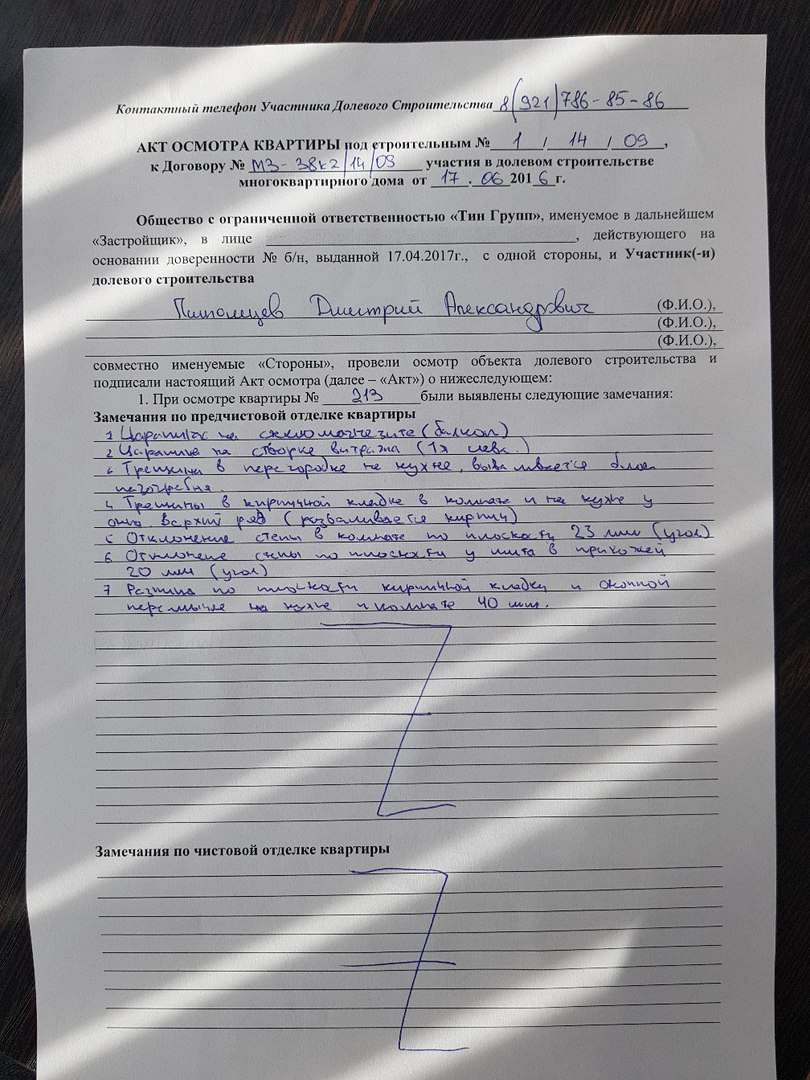 Контактный телефон Участника Долевого Строительства 8(921)786-85-86
АКТ ОСМОТРА КВАРТИРЫ под строительным № 1 / 14 / 09,
к Договору № МЗ-38к2/14/09 участия в долевом строительстве
многоквартирного дома от 17.06 2016 г.
Общество с ограниченной ответственностью «Тин Групп», именуемое в дальнейшем
«Застройщик», в лице ____, действующего на
основании доверенности № б/н, выданной 17.04.2017г., с одной стороны, и Участник(-и)
долевого строительства
Дмитрий Александрович (Ф.И.О.),
(Ф.И.О.),
(Ф.И.О.),
совместно именуемые «Стороны», провели осмотр объекта долевого строительства и
подписали настоящий Акт осмотра (далее – «Акт») о нижеследующем:
1. При осмотре квартиры № 213 были выявлены следующие замечания:
Замечания по предчистовой отделке квартиры
1 Царапины на (балкон)
2 Царапина на створке витража (1я слева)
Трещина в перегородке на кухне, вываливается блок
пазогребня
4 Трещины в кирпичной кладке в комнате и на кухне у
окна верхний ряд (разваливается кирпич)
5 Отклонение стены в комнате по плоскости 23 мм (угол)
6 Отклонение стены по плоскости у щита в прихожей
20 мм (угол)
7 Разница по плоскости кирпичной кладки и оконной
перемычке на кухне и комнате 40 мм.
Замечания по чистовой отделке квартиры